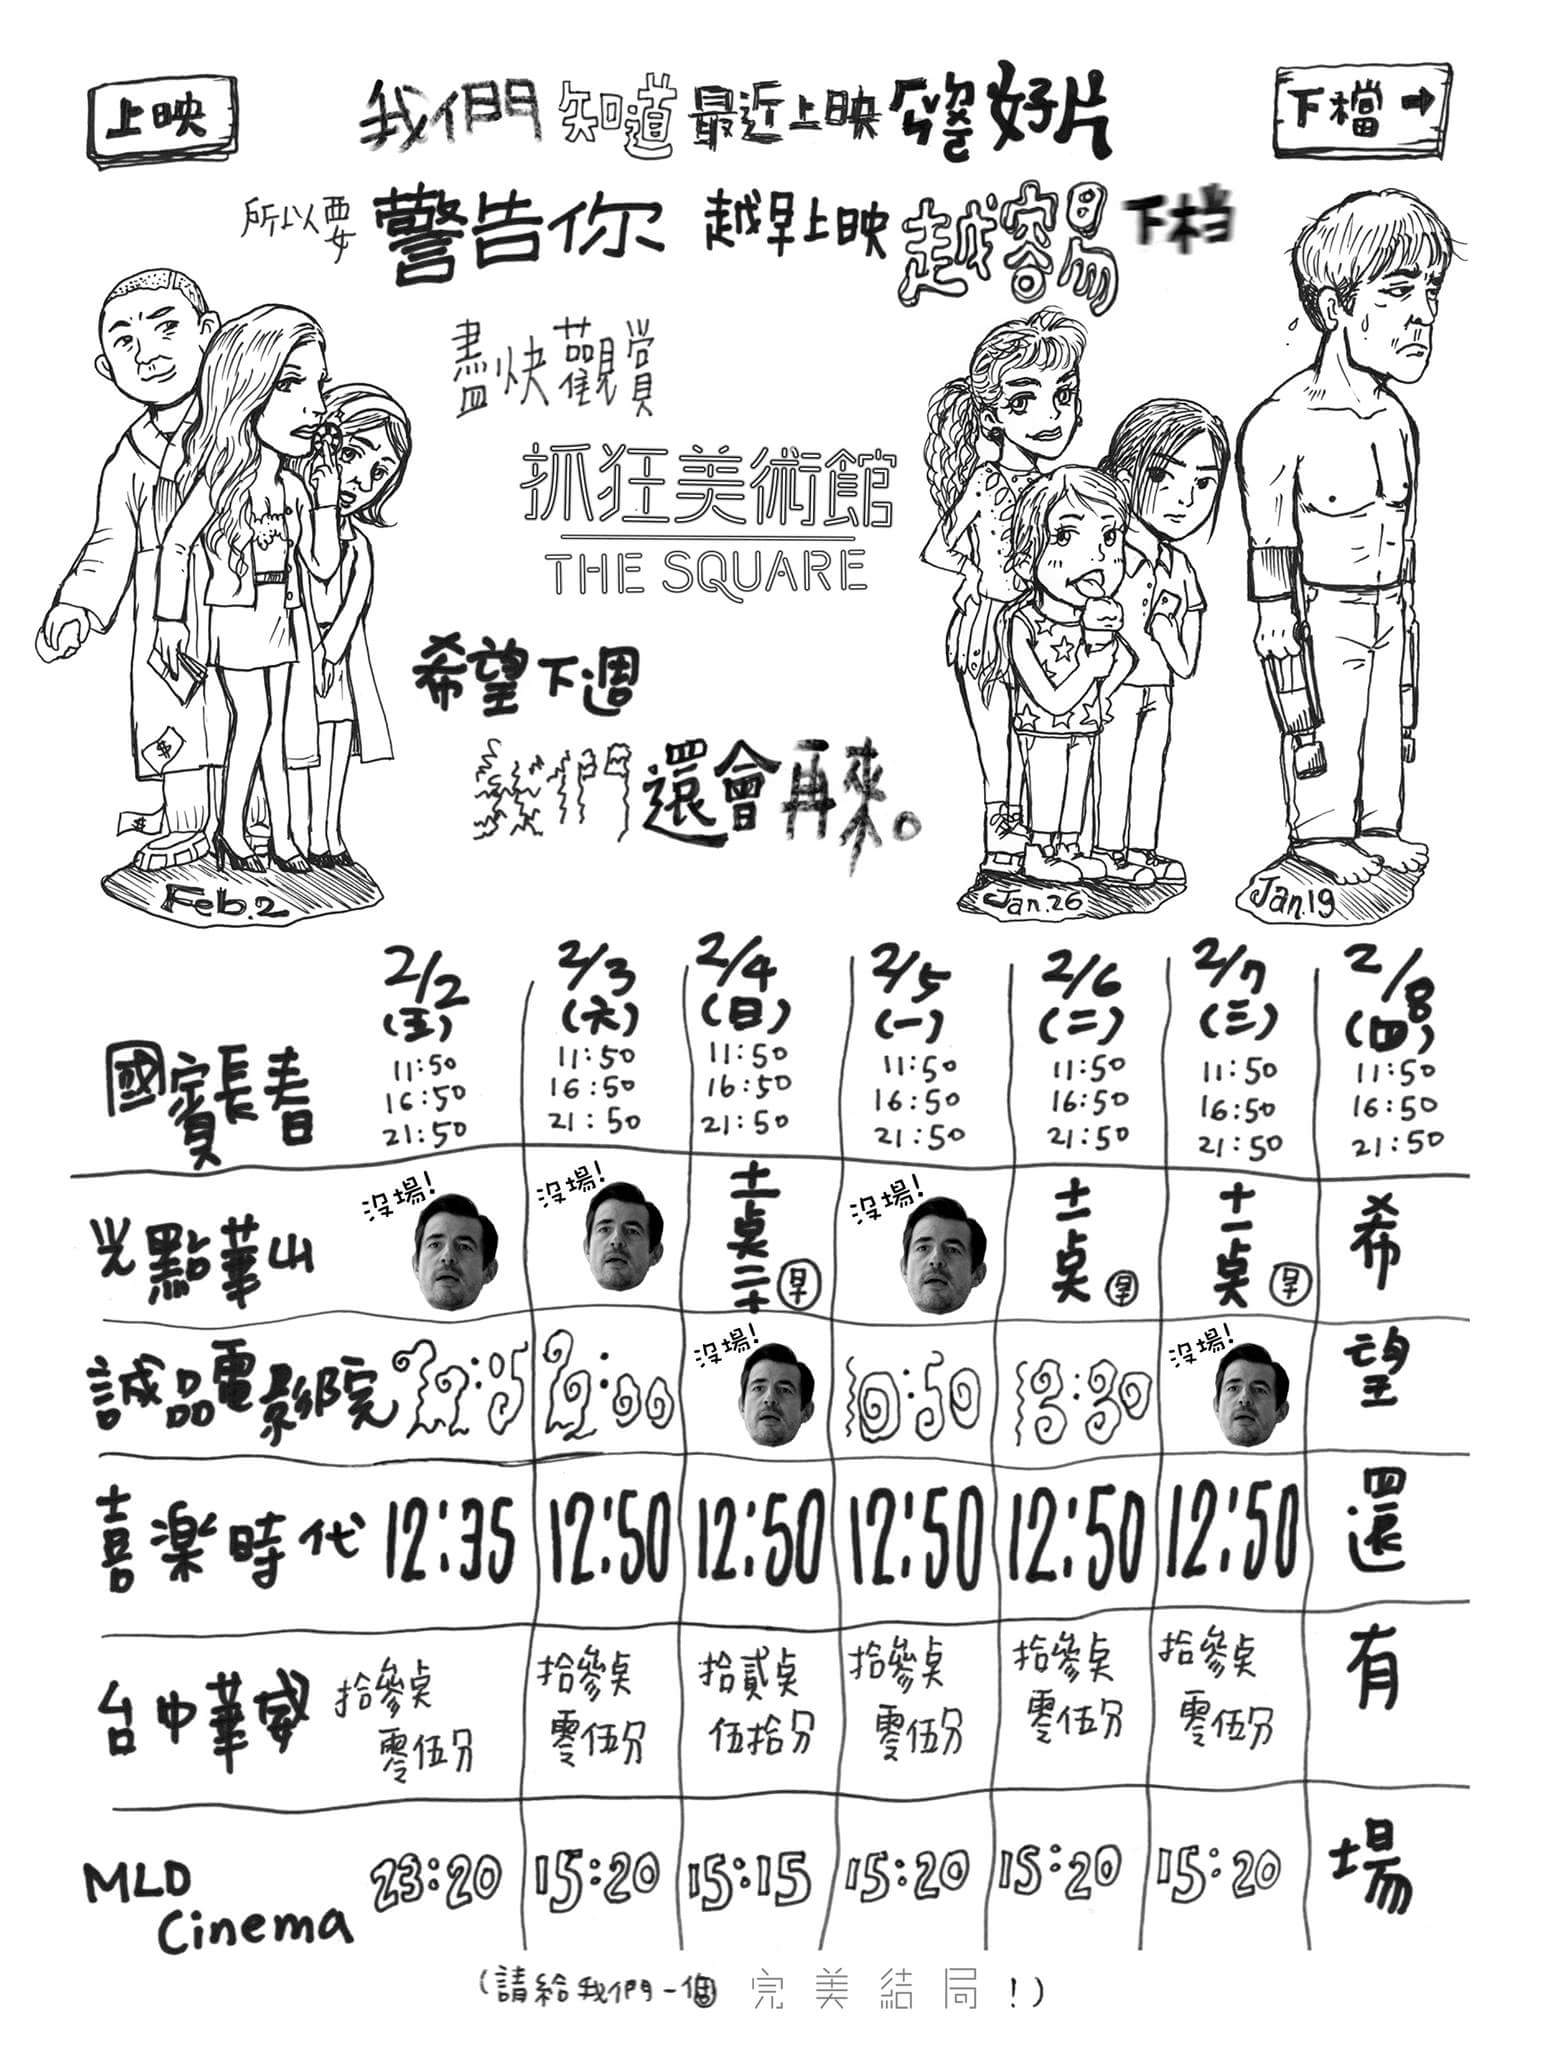 上映
我們知道最近上映好片
下檔→
所以要警告你 越早上映越容易下档
盡快觀賞
抓狂美術館
THE SQUARE
希望下週
我們還會再來。
Feb.2
Jan.26
Jan.19
2/2 2/3 2/4 2/5 2/6 2/7 2/8
(五) (六) (日) (一) (二) (三) (四)
國賓長春
11:50 11:50 11:50 11:50 11:50 11:50 11:50
16:50 16:50 16:50 16:50 16:50 16:50 16:50
21:50 21:50 21:50 21:50 21:50 21:50 21:50
光點華山 沒場! 沒場! 十一点二十 早 沒場! 十一点 早 十一点 早 希
誠品電影院 20:00 沒場! 10:50 沒場! 望
喜樂時代 12:35 12:50 12:50 12:50 12:50 12:50 還
台中華威 拾參点 拾參点 拾貳点 拾參点 拾參点 拾參点 有
零伍分 零伍分 伍拾分 零伍分 零伍分 零伍分
MLD 23:20 15:20 15:15 15:20 15:20 15:20 場
Cinema
(請給我們一個 完美結局!)